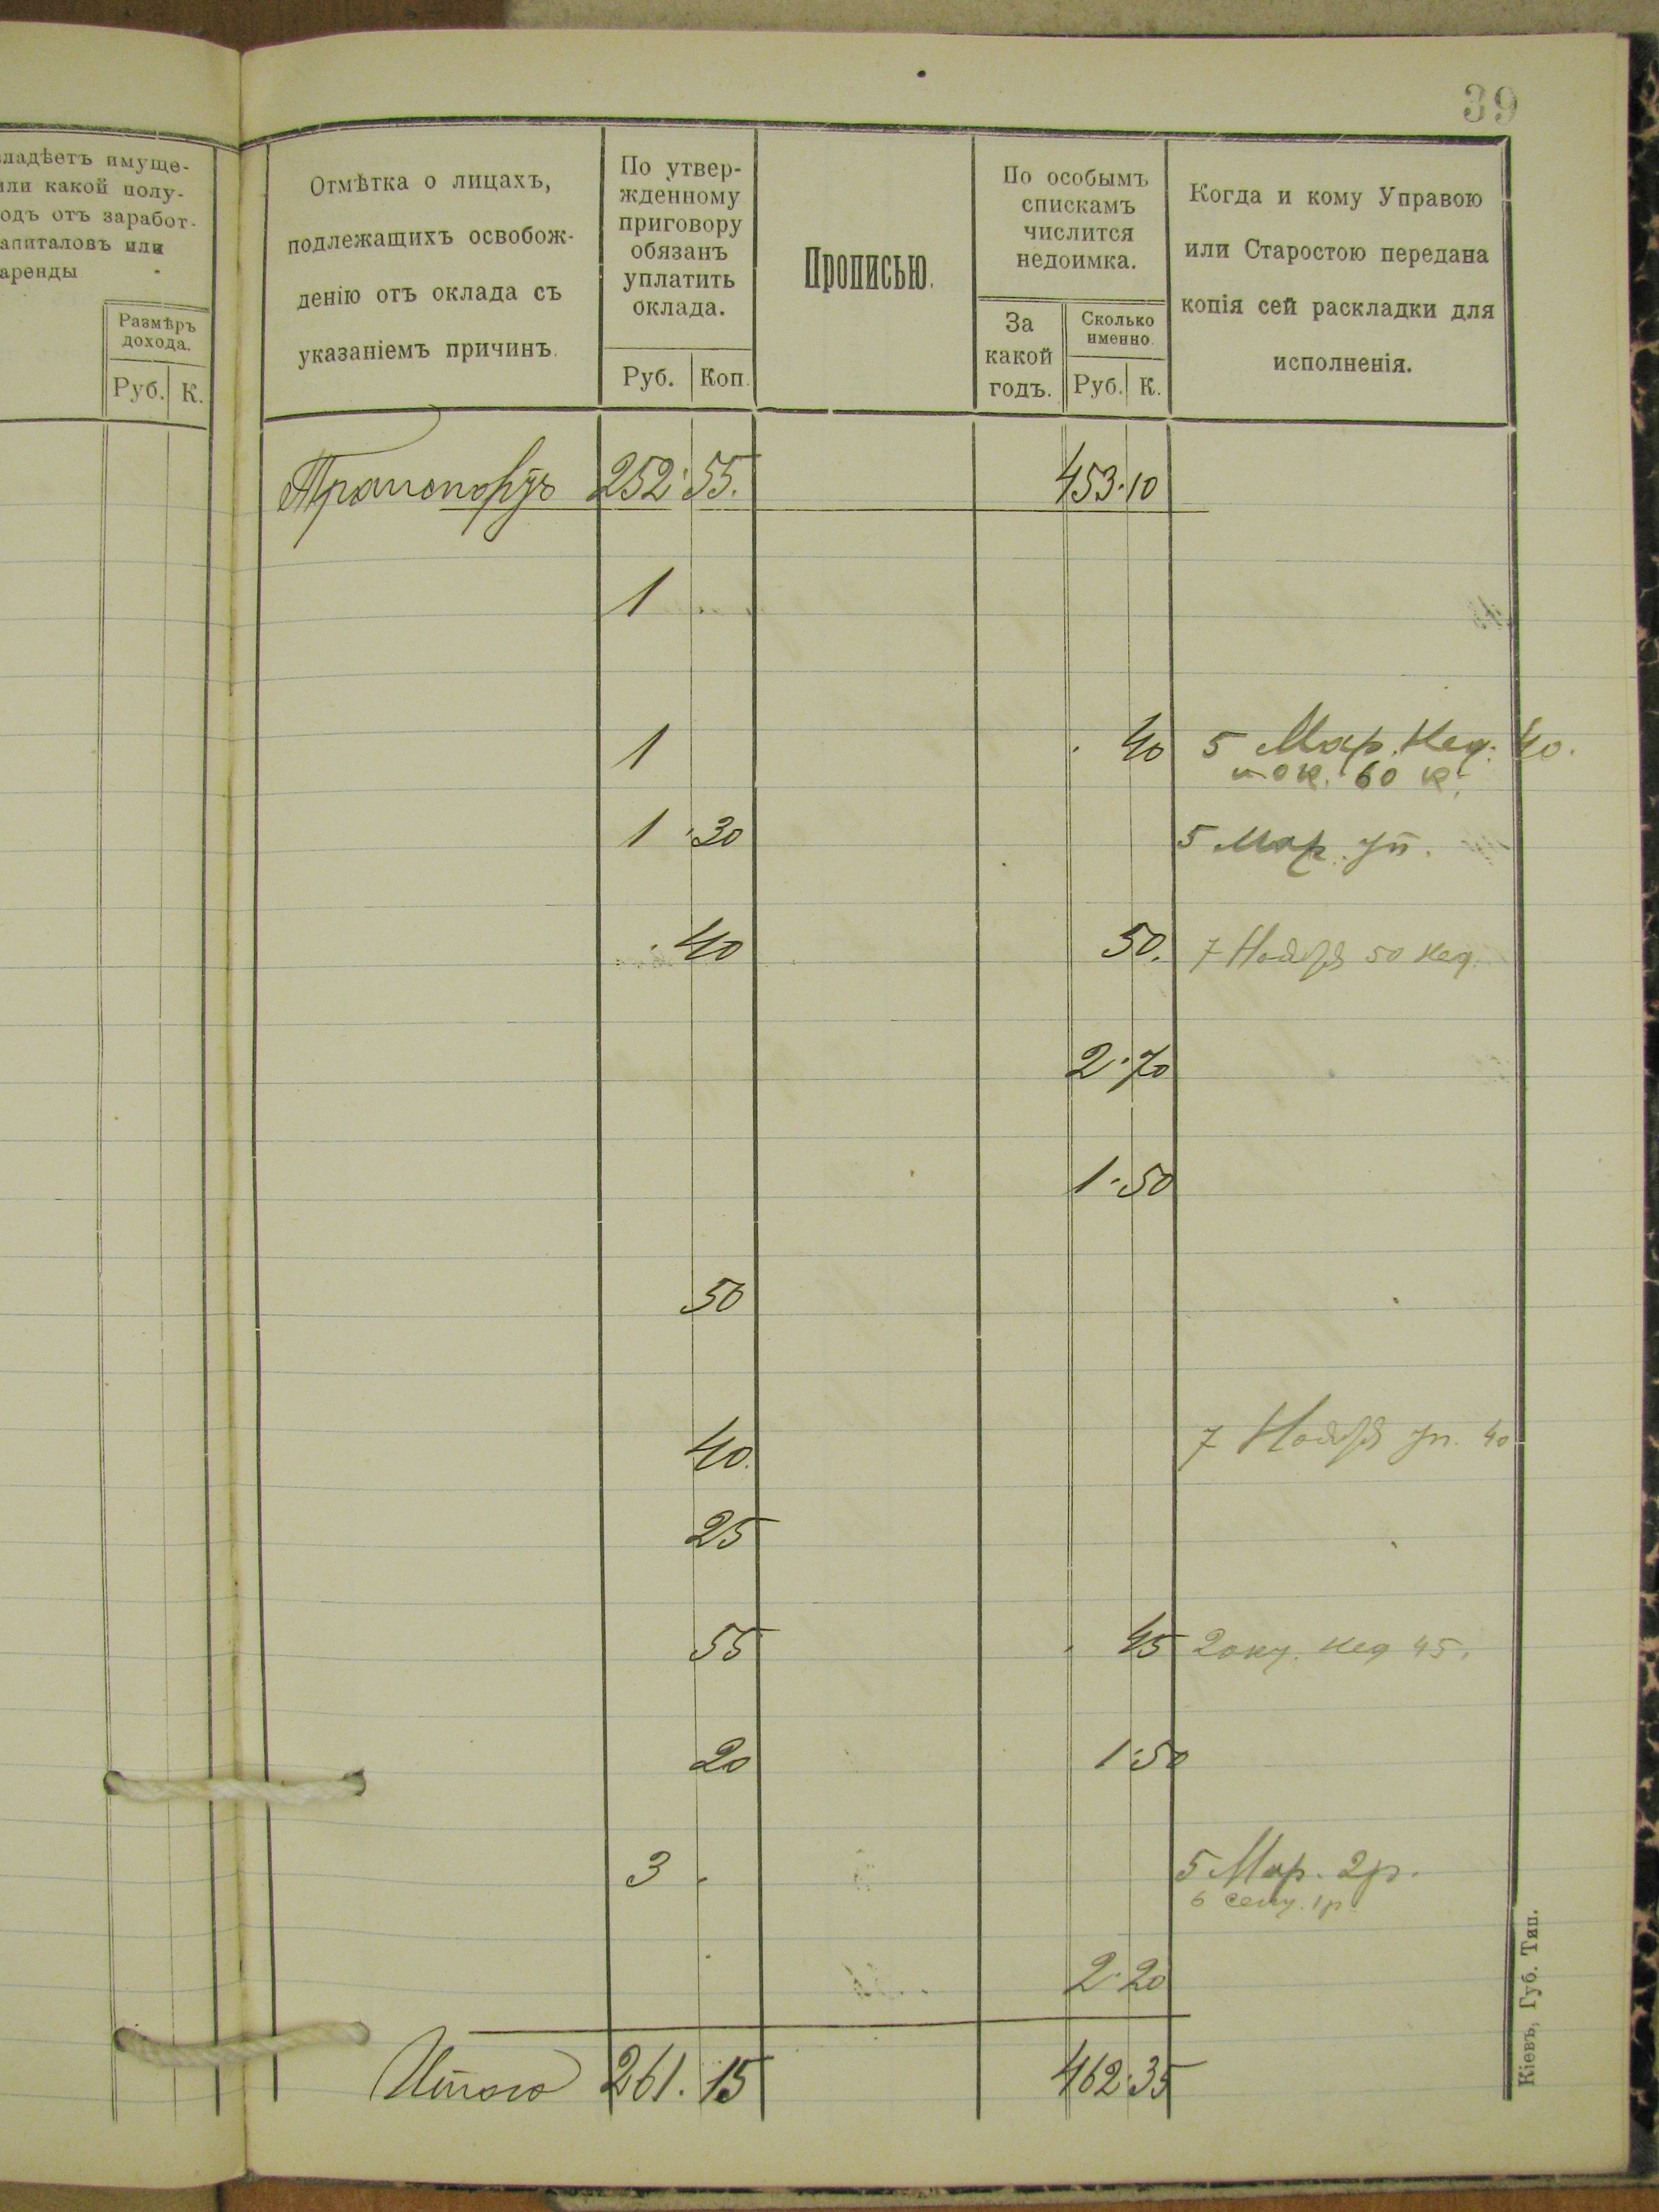 39
владѣетъ имуще-
или какой полу-
одъ отъ заработ-
апиталовъ или
аренды
Размѣръ
дохода.
Руб. К.
Отмѣтка о лицахъ,
подлежащихъ освобож-
денію отъ оклада съ
указаніемъ причинъ.
По утвер-
жденному
приговору
обязанъ
уплатить
оклада.
Руб. Коп.
Прописью.
По особымъ
спискамъ
числится
недоимка.
За
какой
годъ.
Сколько
именно.
Руб. К.
Когда и кому Управою
или Старостою передана
копія сей раскладки для
исполненія.
Транспортъ 252 55. 453.10
1
1 40 5 Мар. Нед. 40.
и ок. 60 к.
1 30 5 Мар. уп.
40 50. 7 Ноября 50 Нед.
2.70
1.50
50
40. 7 Ноября уп. 40
25
55 45 2 окт. нед 45.
20 1.50
3 5 Мар. 2р.
6 сент. 1р
2.20
Итого 261.15 462.35
Кіевъ, Губ. Тип.